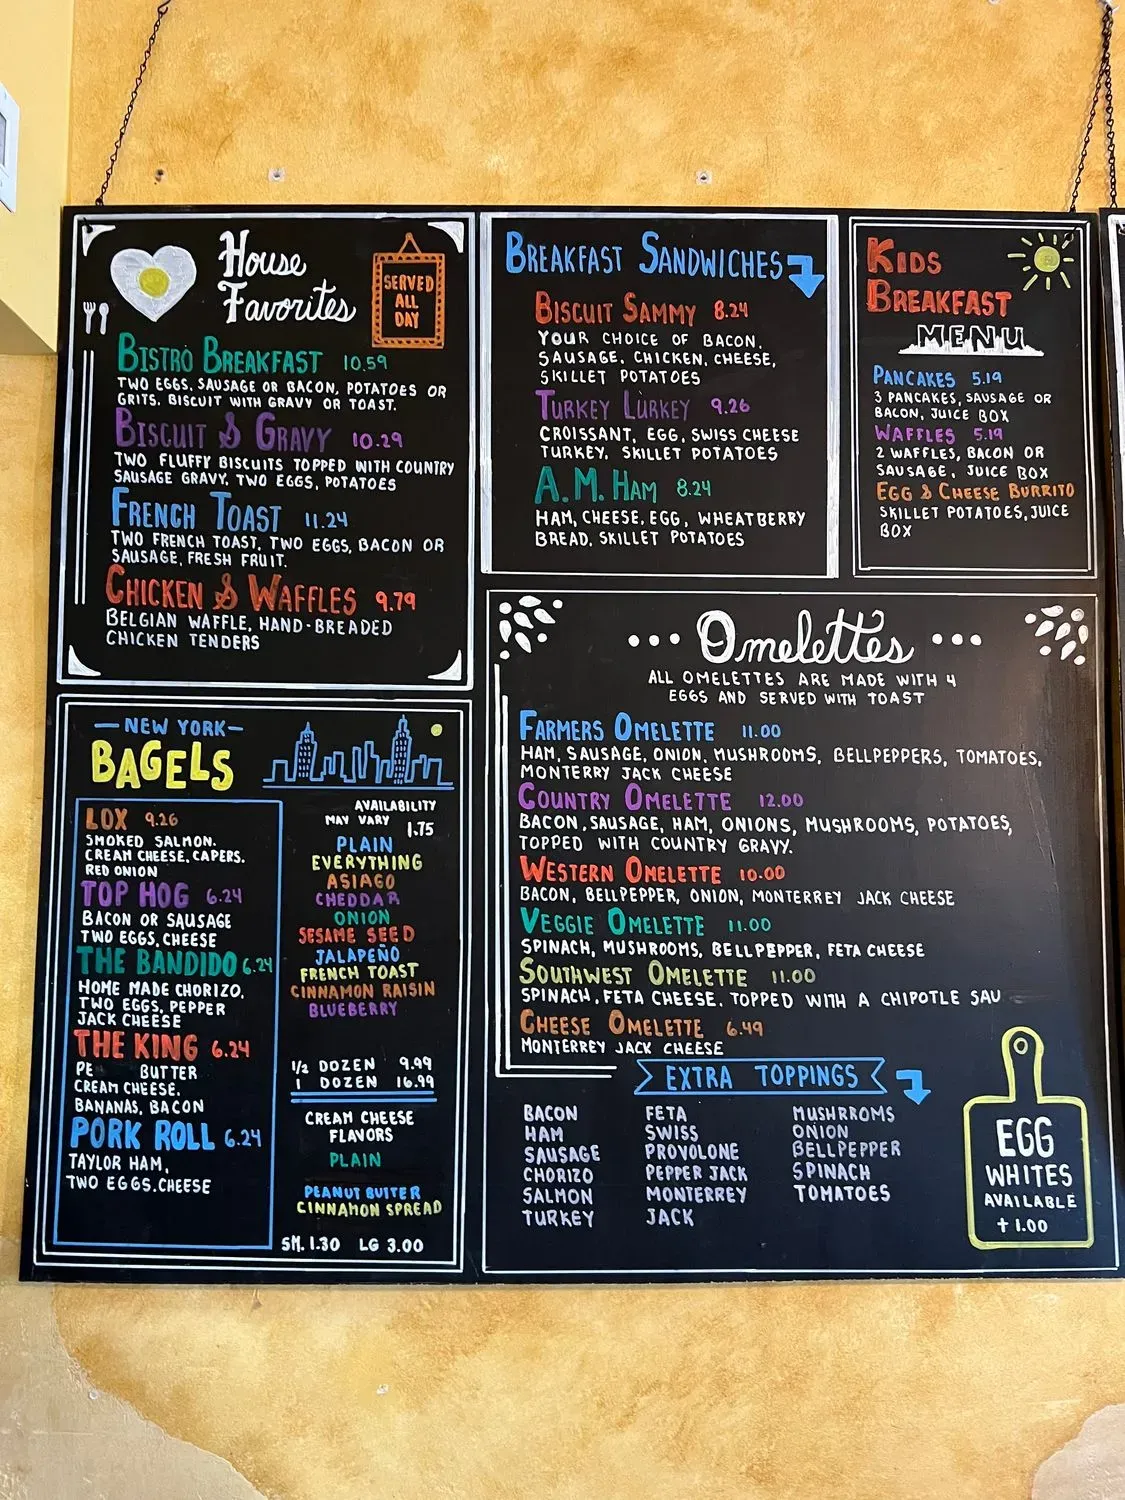 House
Favorites
SERVED
ALL
DAY
BISTRO BREAKFAST 10.59
TWO EGGS, SAUSAGE OR BACON, POTATOES OR
GRITS. BISCUIT WITH GRAVY OR TOAST.
BISCUIT & GRAVY 10.29
TWO FLUFFY BISCUITS TOPPED WITH COUNTRY
SAUSAGE GRAVY, TWO EGGS, POTATOES
FRENCH TOAST 11.24
TWO FRENCH TOAST, TWO EGGS, BACON OR
SAUSAGE, FRESH FRUIT.
CHICKEN & WAFFLES 9.79
BELGIAN WAFFLE, HAND-BREADED
CHICKEN TENDERS
BREAKFAST SANDWICHES
BISCUIT SAMMY 8.24
YOUR CHOICE OF BACON,
SAUSAGE, CHICKEN, CHEESE,
SKILLET POTATOES
TURKEY LURKEY 9.26
CROISSANT, EGG, SWISS CHEESE
TURKEY, SKILLET POTATOES
A.M. HAM 8.24
HAM, CHEESE, EGG, WHEATBERRY
BREAD, SKILLET POTATOES
KIDS
BREAKFAST
MENU
PANCAKES 5.19
3 PANCAKES, SAUSAGE OR
BACON, JUICE BOX
WAFFLES 5.19
2 WAFFLES, BACON OR
SAUSAGE, JUICE BOX
EGG & CHEESE BURRITO
SKILLET POTATOES, JUICE
BOX
—NEW YORK—
BAGELS
LOX 9.26
SMOKED SALMON.
CREAM CHEESE, CAPERS.
RED ONION
TOP HOG 6.24
BACON OR SAUSAGE
TWO EGGS, CHEESE
THE BANDIDO 6.24
HOME MADE CHORIZO,
TWO EGGS, PEPPER
JACK CHEESE
THE KING 6.24
PE BUTTER
CREAM CHEESE.
BANANAS, BACON
PORK ROLL 6.24
TAYLOR HAM,
TWO EGGS.CHEESE
AVAILABILITY
MAY VARY 1.75
PLAIN
EVERYTHING
ASIAGO
CHEDDAR
ONION
SESAME SEED
JALAPEÑO
FRENCH TOAST
CINNAMON RAISIN
BLUEBERRY
1/2 DOZEN 9.99
1 DOZEN 16.99
CREAM CHEESE
FLAVORS
PLAIN
PEANUT BUTTER
CINNAMON SPREAD
SM. 1.30 LG 3.00
... Omelettes ...
ALL OMELETTES ARE MADE WITH 4
EGGS AND SERVED WITH TOAST
FARMERS OMELETTE 11.00
HAM, SAUSAGE, ONION, MUSHROOMS, BELLPEPPERS, TOMATOES,
MONTERRY JACK CHEESE
COUNTRY OMELETTE 12.00
BACON, SAUSAGE, HAM, ONIONS, MUSHROOMS, POTATOES,
TOPPED WITH COUNTRY GRAVY.
WESTERN OMELETTE 10.00
BACON, BELLPEPPER, ONION, MONTERREY JACK CHEESE
VEGGIE OMELETTE 11.00
SPINACH, MUSHROOMS, BELLPEPPER, FETA CHEESE
SOUTHWEST OMELETTE 11.00
SPINACH, FETA CHEESE. TOPPED WITH A CHIPOTLE SAU
CHEESE OMELETTE 6.49
MONTERREY JACK CHEESE
EXTRA TOPPINGS
BACON
HAM
SAUSAGE
CHORIZO
SALMON
TURKEY
FETA
SWISS
PROVOLONE
PEPPER JACK
MONTERREY
JACK
MUSHRROMS
ONION
BELLPEPPER
SPINACH
TOMATOES
EGG
WHITES
AVAILABLE
+ 1.00